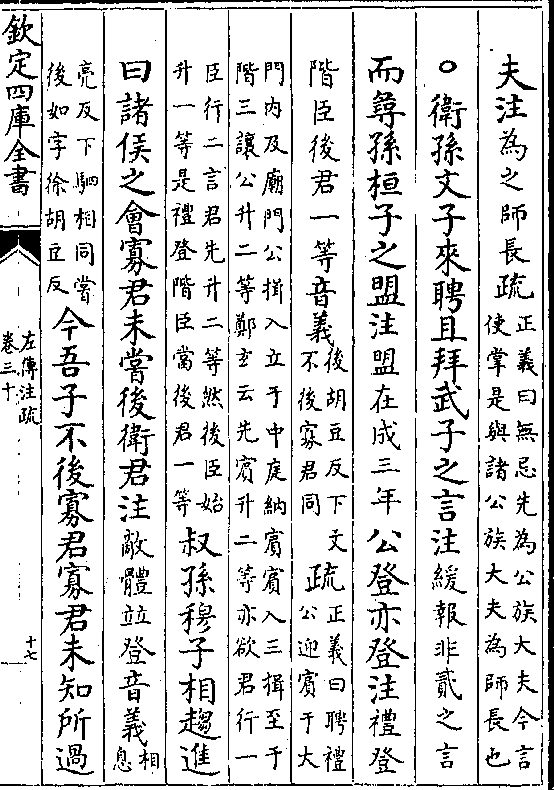 夫注為之師長疏正義曰無忌先為公族大夫今言
使掌是與諸公族大夫為師長也
○衛孫文子來聘且拜武子之言注緩報非貳之言
而尋孫桓子之盟注盟在成三年公登亦登注禮登
階臣後君一等音義後胡豆反下文
不後寡君同疏正義曰聘禮
公迎賓于大
門内及廟門公揖入立于中庭納賓賓入三揖至于
階三讓公升二等鄭玄云先賓升二等亦欲君行一
臣行二言君先升二等然後臣始
升一等是禮登階臣當後君一等叔孫穆子相趨進
曰諸侯之會寡君未嘗後衛君注敵體並登音義相
息
亮反下駟相同嘗
後如字徐胡豆反今吾子不後寡君寡君未知所過
欽定四庫全書
左傳注疏
卷三十
十七